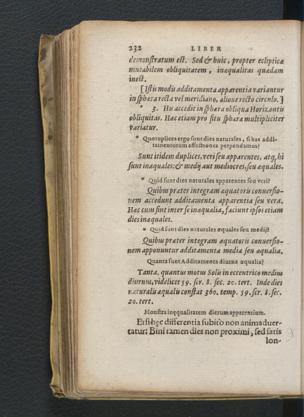 232 LIBER
demonstratum est. Sed & huic, propter eclipticæ
mutabilem obliquitatem, inæqualitas quædam
inest.
[Isti modi additamenta apparentia variantur
in sphæra recta vel meridiano, aliove recto circulo.]
* 3. Hu accedit in sphæra obliqua Horizontis
obliquitas. Hac etiam pro situ sphæræ multipliciter
variatur.
* Quotuplices ergo sunt dies naturales, si hac addi-
tamentorum affectiones perpendamus?
Sunt itidem duplices, veri seu apparentes, atq, hi
sunt inæquales: & medij aut mediocres, seu æquales.
* Quid sunt dies naturales apparentes seu veri?
Quibus præter integram æquatoris conversio-
nem accedunt additamenta apparentia seu vera.
Hæc cum sint inter se inæqualia, faciunt ipsos etiam
dies inæquales.
* Quid sunt dies naturales æquales seu medij?
Quibus præter integram æquatoris conversio-
nem apponuntur additamenta media seu æqualia.
Quanta sunt Additamenta diurna æqualia?
Tanta, quantus motus Solis in eccentrico medius
diurnus, videlicet 59. scr. 8. sec. 20. tert. Inde dies
naturalis æqualis constat 360. temp. 59. scr. 8. sec.
20. tert.
Monstra inæqualitatem dierum apparentium.
Etsi hæc differentia subito non animadver-
tatur: Bini tamen dies non proximi, sed satis
lon-